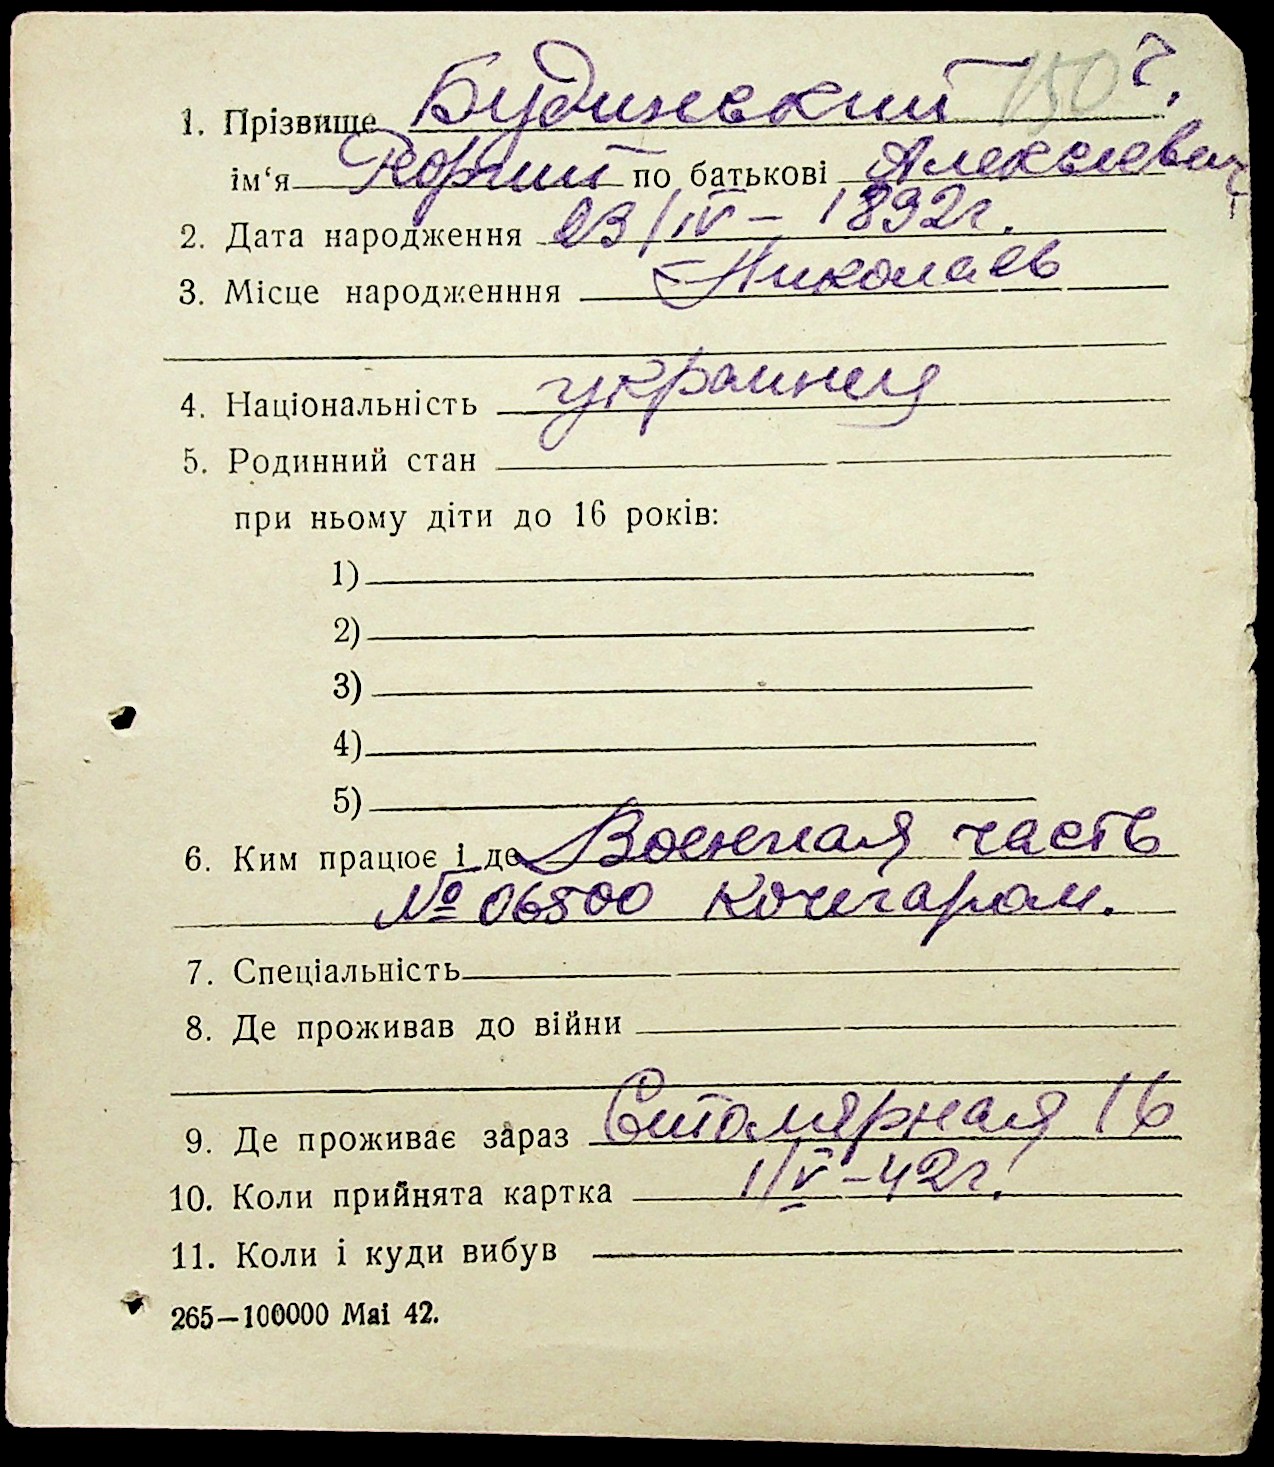 1. Прізвище Будиневский 150 г.
ім‘я Юрий по батькові Алексеевич
2. Дата народження 23/IV – 1892г.
3. Місце народженння г. Николаев
4. Національність украинец
5. Родинний стан
при ньому діти до 16 років:
1)
2)
3)
4)
5)
6. Ким працює і де Военная часть
№ 06500 кочегаром.
7. Спеціальність
8. Де проживав до війни
9. Де проживає зараз Столярная 16
10. Коли прийнята картка 1/V – 42г.
11. Коли і куди вибув
265—100000 Mai 42.